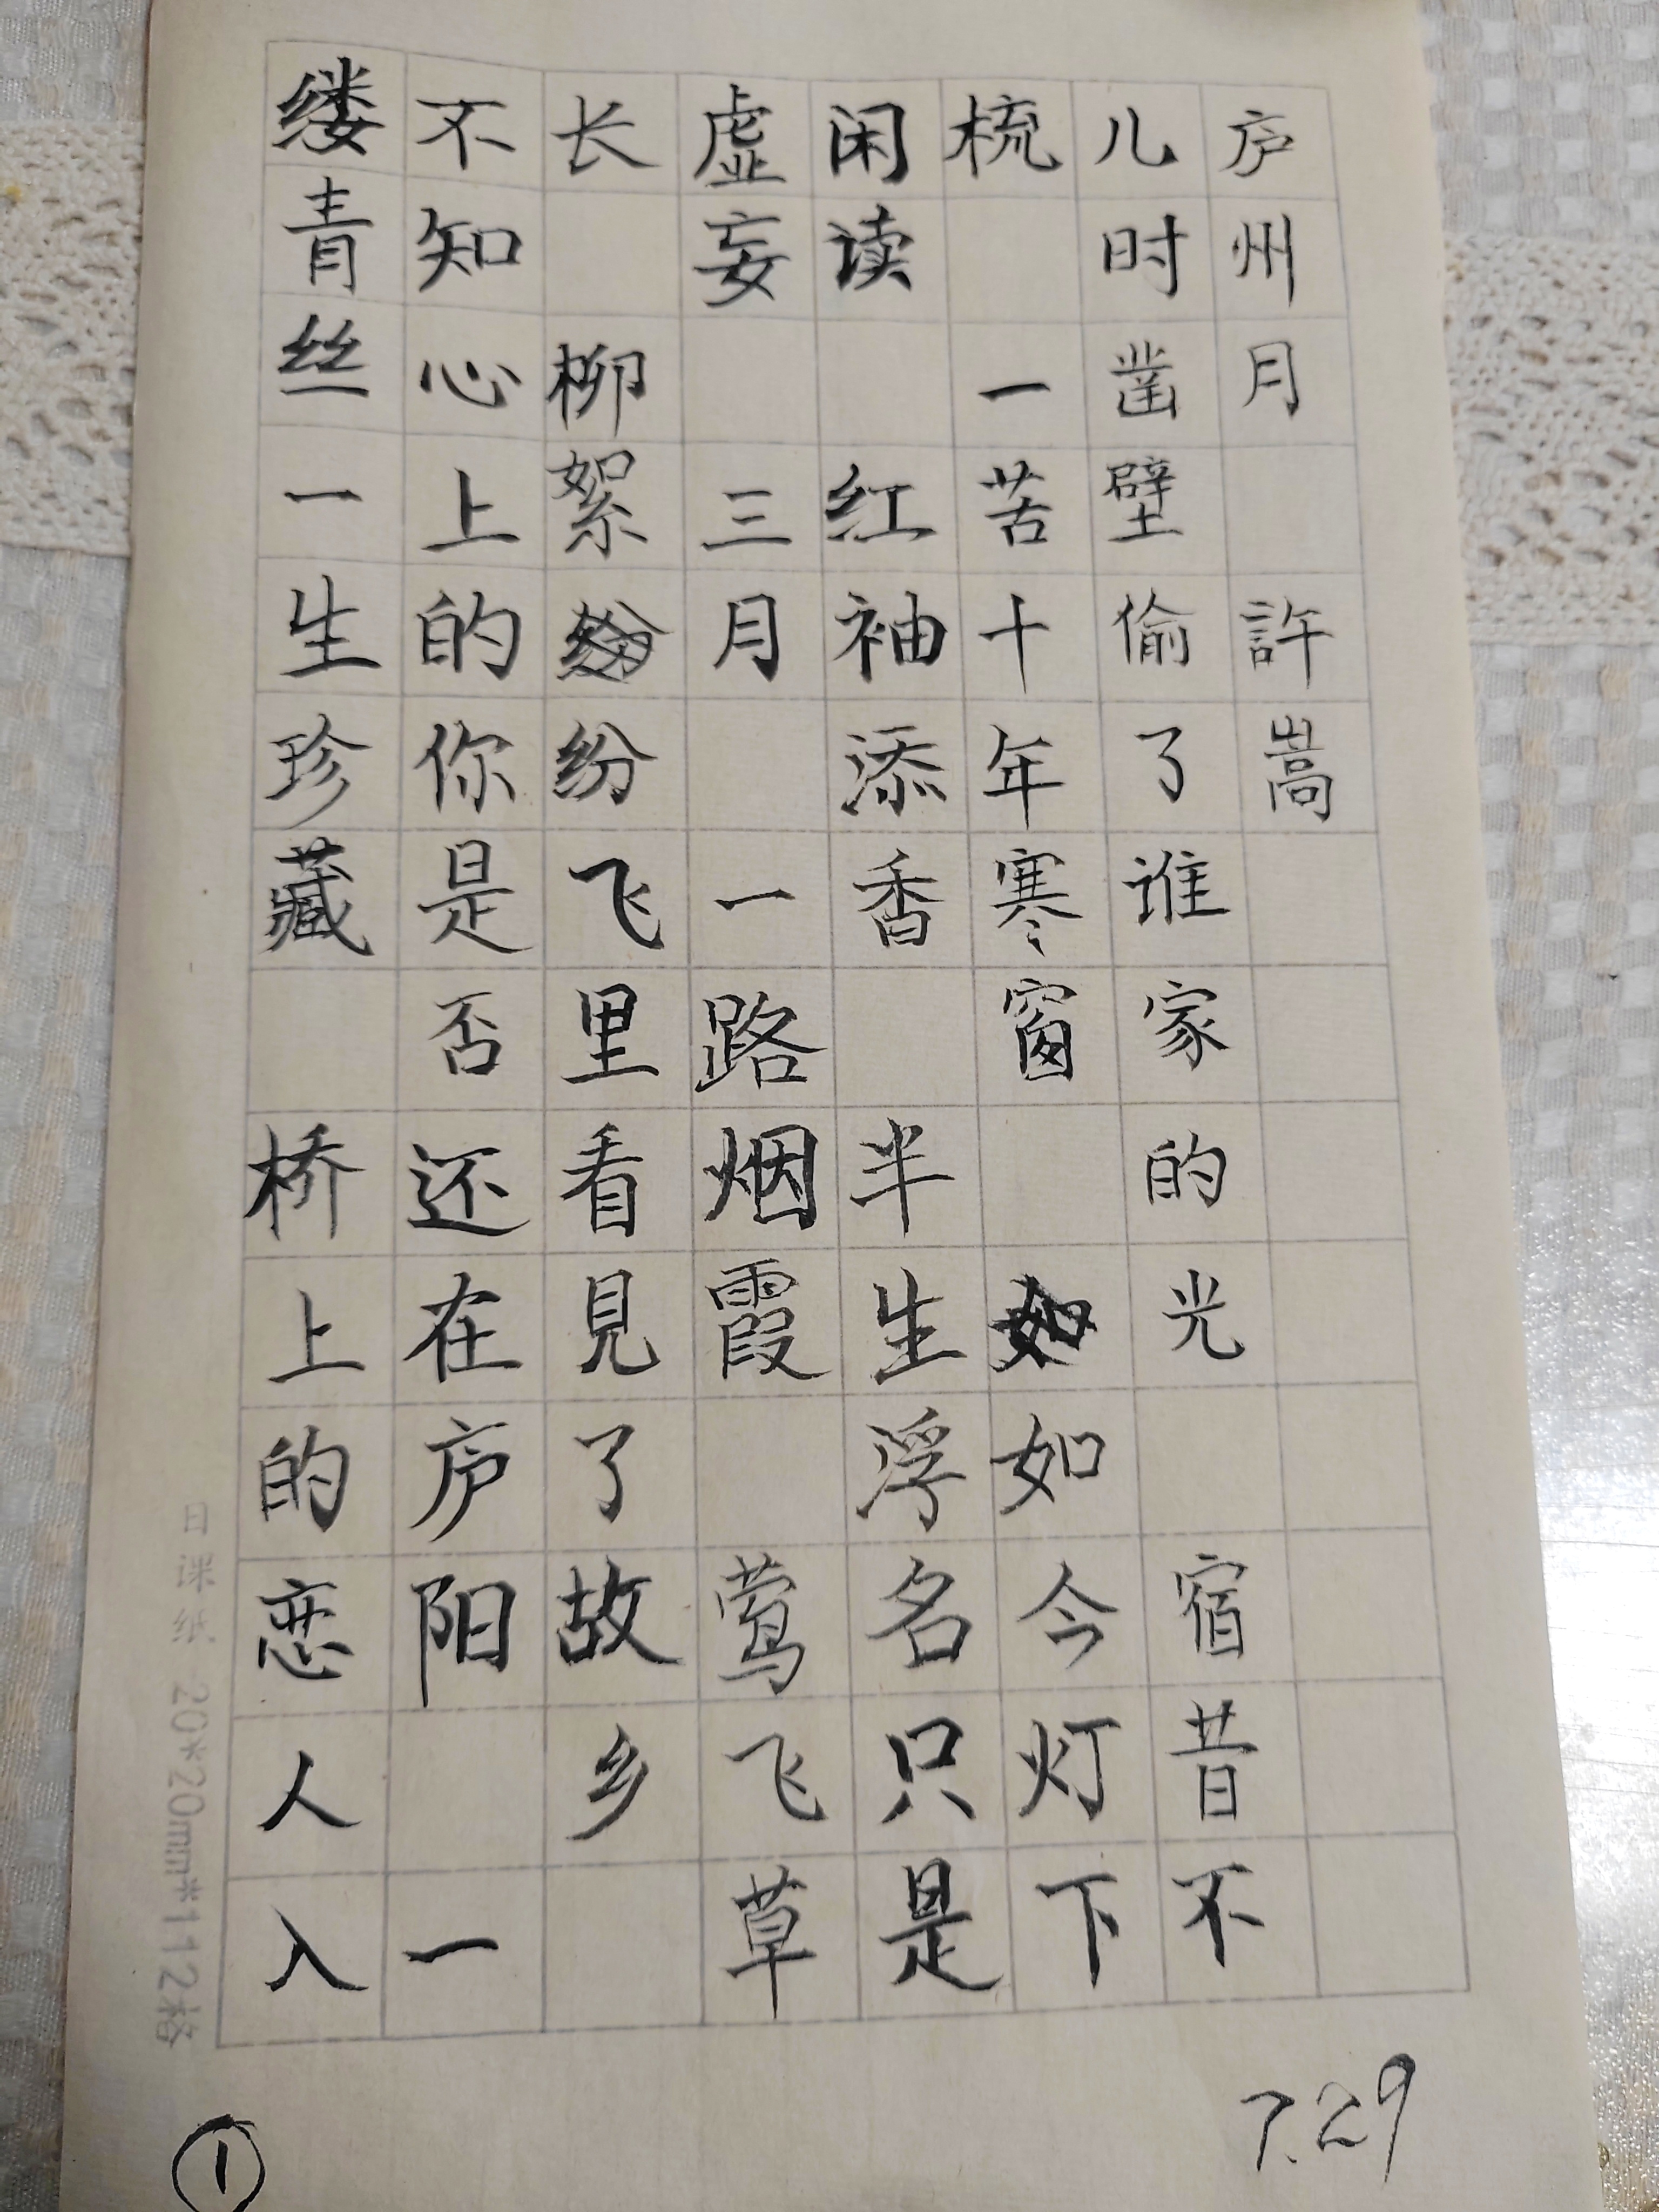 庐州月 許嵩
儿时凿壁偷了谁家的光 宿昔不
梳 一苦十年寒窗 如今灯下
闲读 红袖添香 半生浮名只是
虚妄 三月 一路烟霞 莺飞草
长 柳絮纷飞里看見了故乡
不知心上的你是否还在庐阳 一
缕青丝一生珍藏 桥上的恋人入
日课纸 20*20mm*112格
7.29
1